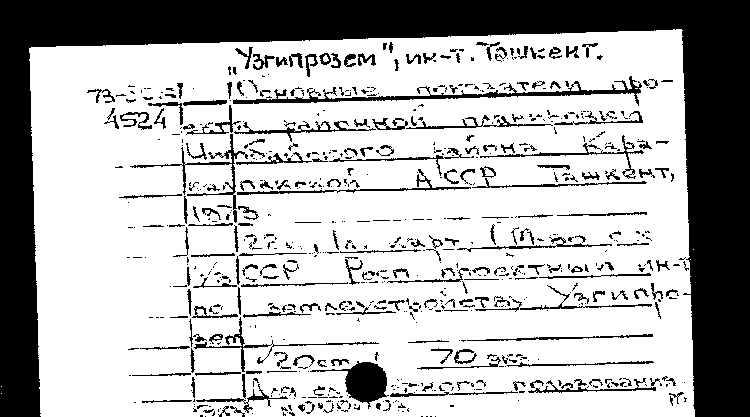 „Узгипрозем", ин-т. Ташкент.
Основные показатели про-
4524 екта районной планировки
Чимбайского района Кара-
калпакской АССР Ташкент,
1973.
22с., 1л. карт. (М-во с.х
УзССР Росп. проектный ин-т
по землеустройству Узгипро-
зем
20см. 70 экз
Для служебного пользования
Экз N000003